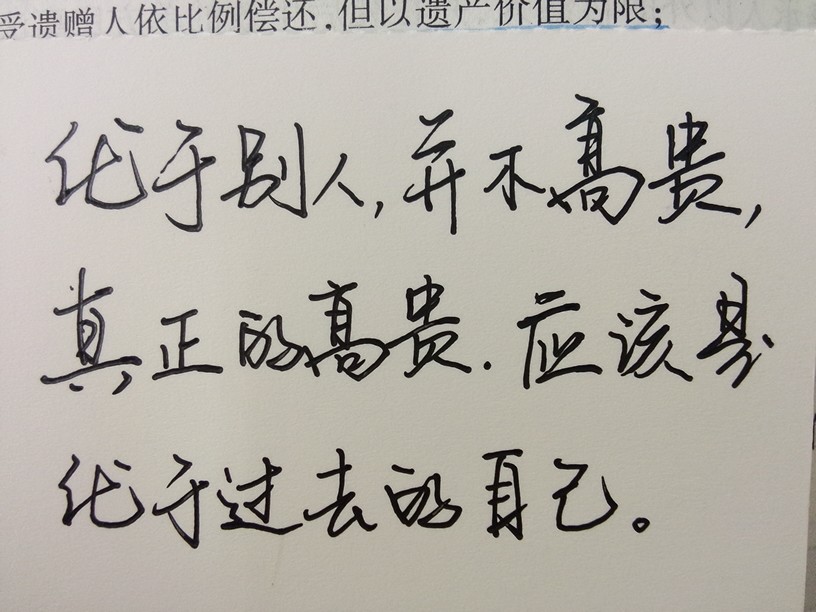 受遗赠人依比例偿还,但以遗产价值为限;
优于别人,并不高贵,
真正的高贵.应该是
优于过去的自己。